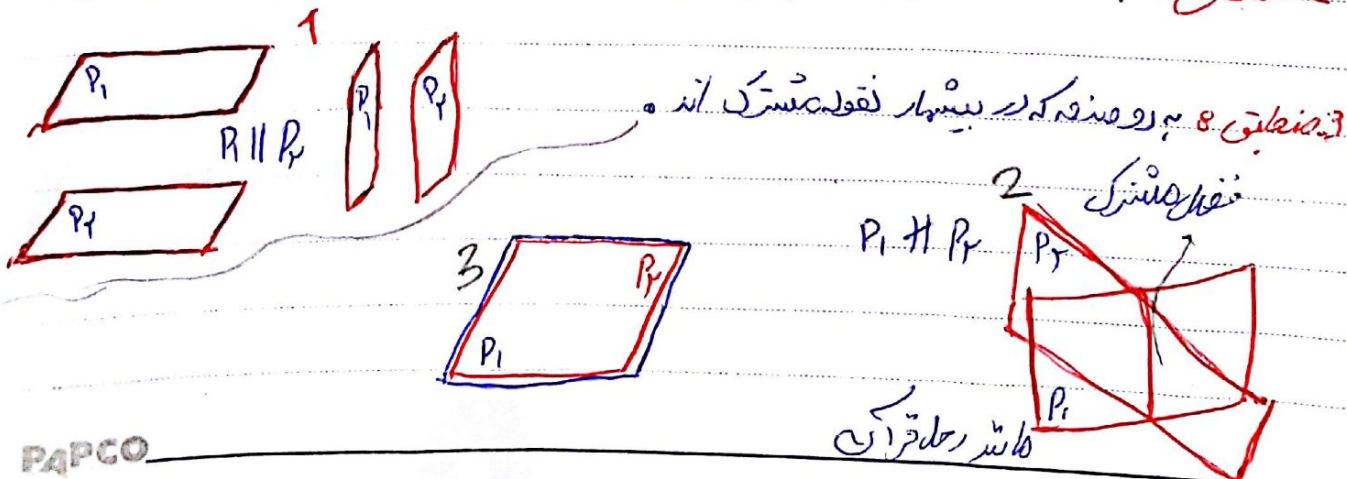 1
P₁
P₁ P₂
3- منطبق : به دو صفحه که در بیشمار نقطه مشترک اند .
P₁ || P₂
2 مشترک
P₂
P₁ ∦ P₂
P₂
3
P₂
P₁
P₁
مانند رحل قرآن
PAPCO